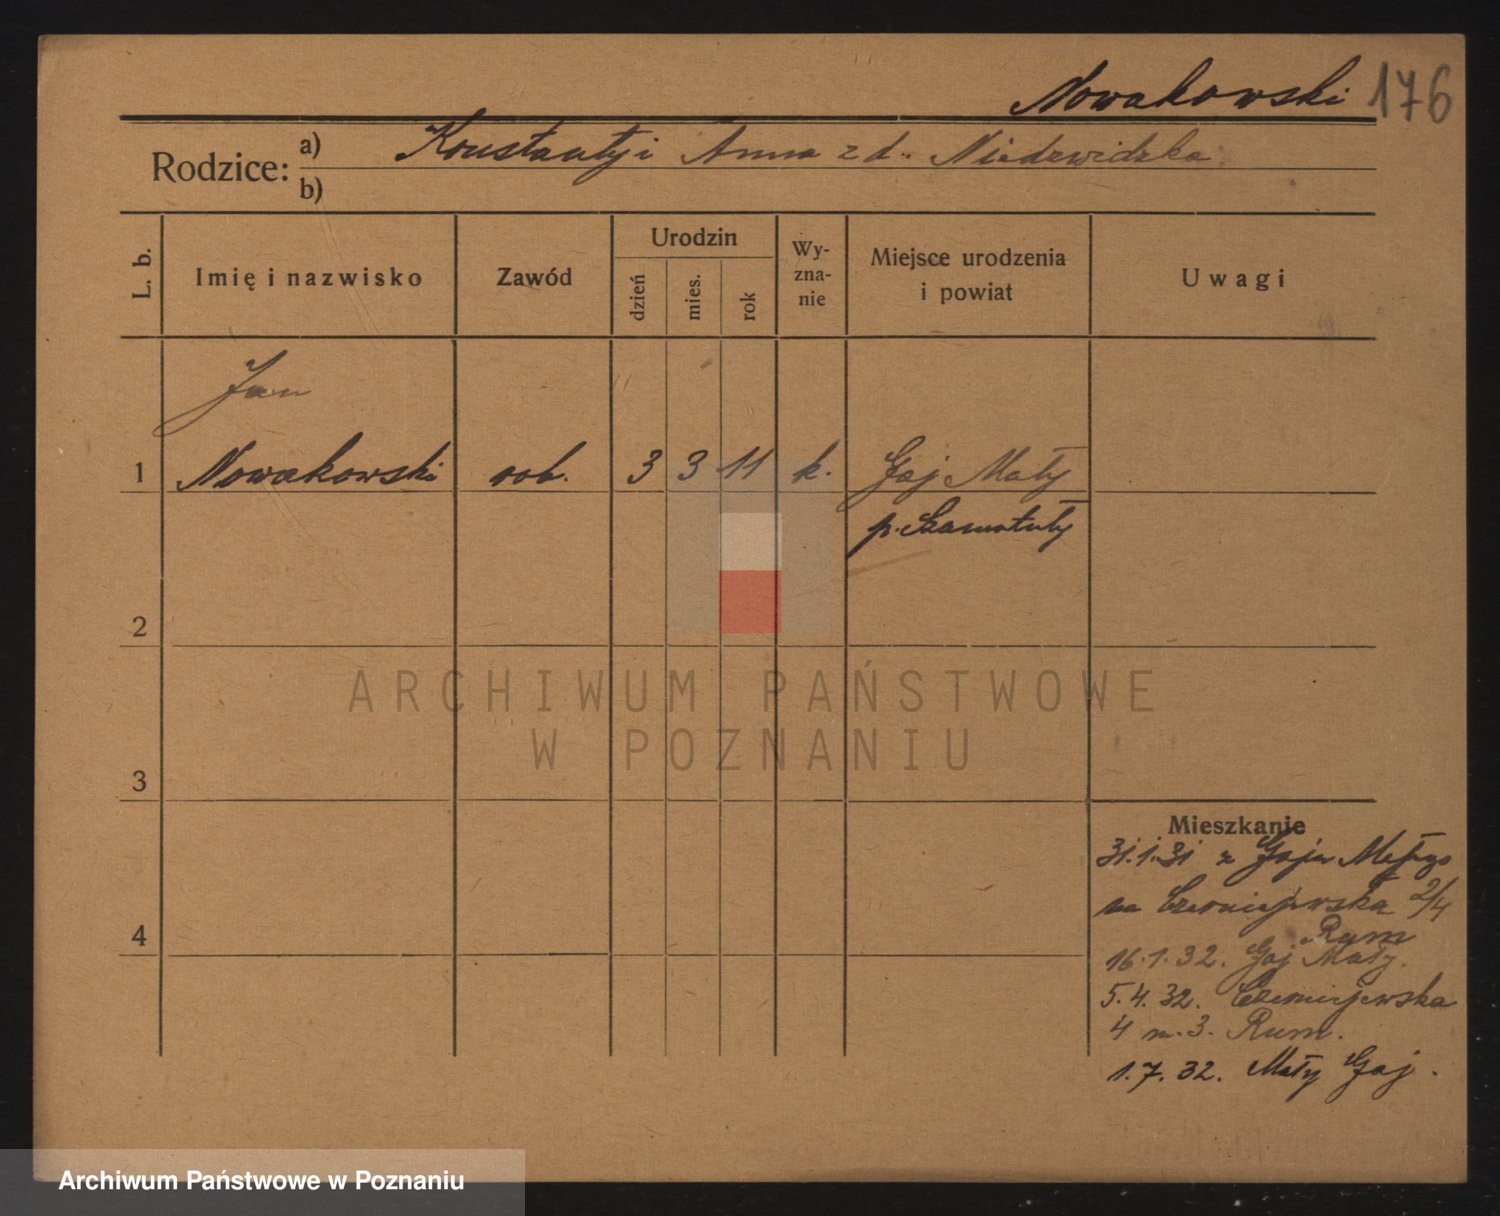 Nowakowski 176
Rodzice: a) Konstanty i Anna z d. Niedzwidzka
b)
L. b.
Imię i nazwisko
Zawód
Urodzin
dzień
mies.
rok
Wy-
zna-
nie
Miejsce urodzenia
i powiat
Uwagi
Jan
1 Nowakowski rob. 3 3 11 k. Gaj Mały
p. Szamotuły
2
ARCHIWUM PAŃSTWOWE
W POZNANIU
3
Mieszkanie
31.1.31 z Gaju Małego
na Czerniejewska 2/4
Rum
4
16.1.32. Gaj Mały.
5.4.32. Czerniejewska
4 m. 3. Rum.
1.7.32. Mały Gaj.
Archiwum Państwowe w Poznaniu